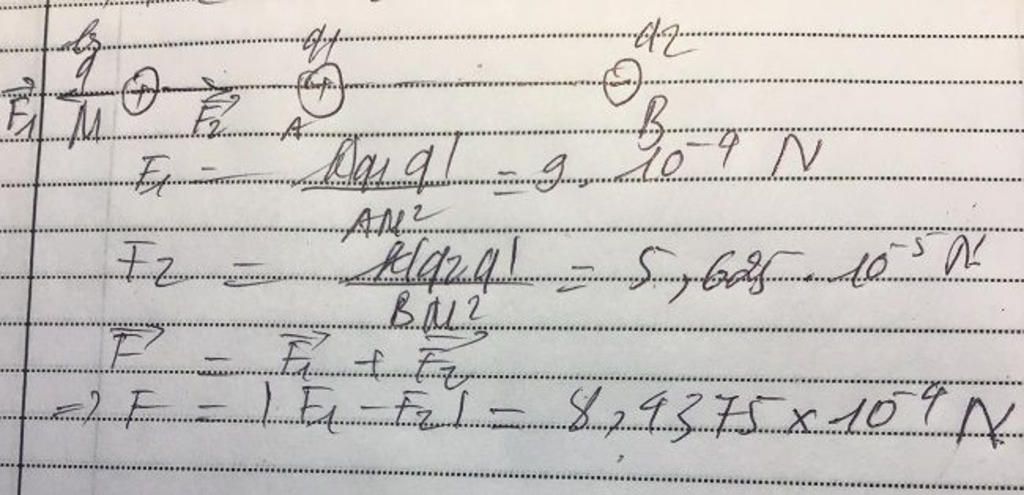 q1 q2
q
F₁⃗ M + F₂⃗ + −
A B
F₁ = k|q₁q| / AM² = 9.10⁻⁴ N
F₂ = k|q₂q| / BM² = 5,625.10⁻⁵ N
F⃗ = F₁⃗ + F₂⃗
=> F = |F₁ - F₂| = 8,4375 x 10⁻⁴ N